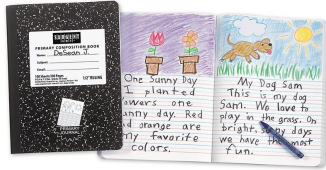 PRIMARY COMPOSITION BOOK
DeSean J.
100 Sheets/200 Pages 1/2" RULING
PRIMARY
JOURNAL
One Sunny Day
I planted
owers one
unny day. Red
d orange are
my favorite
colors.
My Dog Sam
This is my dog
Sam. We love to
play in the grass. On
bright, days
we have the most
fun.